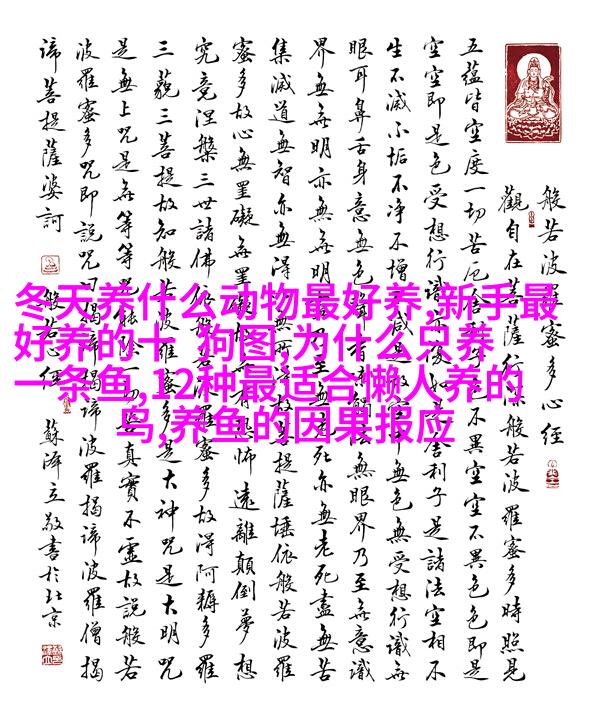 般若波羅蜜多心經
觀自在菩薩行深般若波羅蜜多時照見
五蘊皆空度一切苦厄舍利子色不異空空不異色色即是
空空即是色受想行識亦復如是舍利子是諸法空相不
生不滅不垢不淨不增不減是故空中無色無受想行識無
眼耳鼻舌身意無色聲香味觸法無眼界乃至無意識
界無無明亦無無明盡乃至無老死亦無老死盡無苦
集滅道無智亦無得以無所得故菩提薩埵依般若波羅
蜜多故心無罣礙無罣礙故無有恐怖遠離顛倒夢想
究竟涅槃三世諸佛依般若波羅蜜多故得阿耨多羅
三藐三菩提故知般若波羅蜜多是大神咒是大明咒
是無上咒是無等等咒能除一切苦真實不虛故說般若
波羅蜜多咒即說咒曰揭諦揭諦波羅揭諦波羅僧揭
諦菩提薩婆訶
般若心經 蘇澤立敬書於北京
冬天养什么动物最好养,新手最
好养的十 狗图,为什么只养
一条鱼,12种最适合懒人养的
鸟,养鱼的因果报应